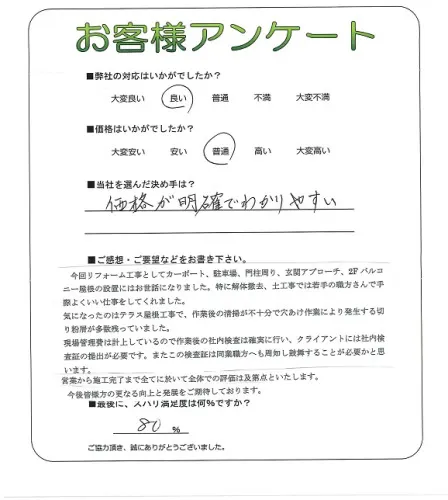 お客様アンケート
■弊社の対応はいかがでしたか?
大変良い 良い 普通 不満 大変不満
■価格はいかがでしたか?
大変安い 安い 普通 高い 大変高い
■当社を選んだ決め手は?
価格が明確でわかりやすい
■ご感想・ご要望などをお書き下さい。
今回リフォーム工事としてカーポート、駐車場、門柱周り、玄関アプローチ、2Fバルコ
ニー屋根の設置にはお世話になりました。特に解体撤去、土工事では若手の職方さんで手
際よくいい仕事をしてくれました。
気になったのはテラス屋根工事で、作業後の清掃が不十分で穴あけ作業により発生する切
り粉屑が多数残っていました。
現場管理費は計上しているので作業後の社内検査は確実に行い、クライアントには社内検
査証の提出が必要です。またこの検査証は同業職方へも周知し鼓舞することが必要かと思
います。
営業から施工完了まで全てに於いて全体での評価は及第点といたします。
今後皆様方の更なる向上と発展をご期待しております。
■最後に、ズバリ満足度は何%ですか?
80 %
ご協力頂き、誠にありがとうございました。